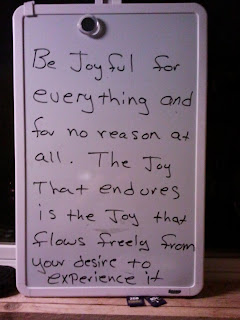 Be Joyful for
everything and
for no reason at
all. The Joy
That endures
is the Joy that
flows freely from
your desire to
experience it